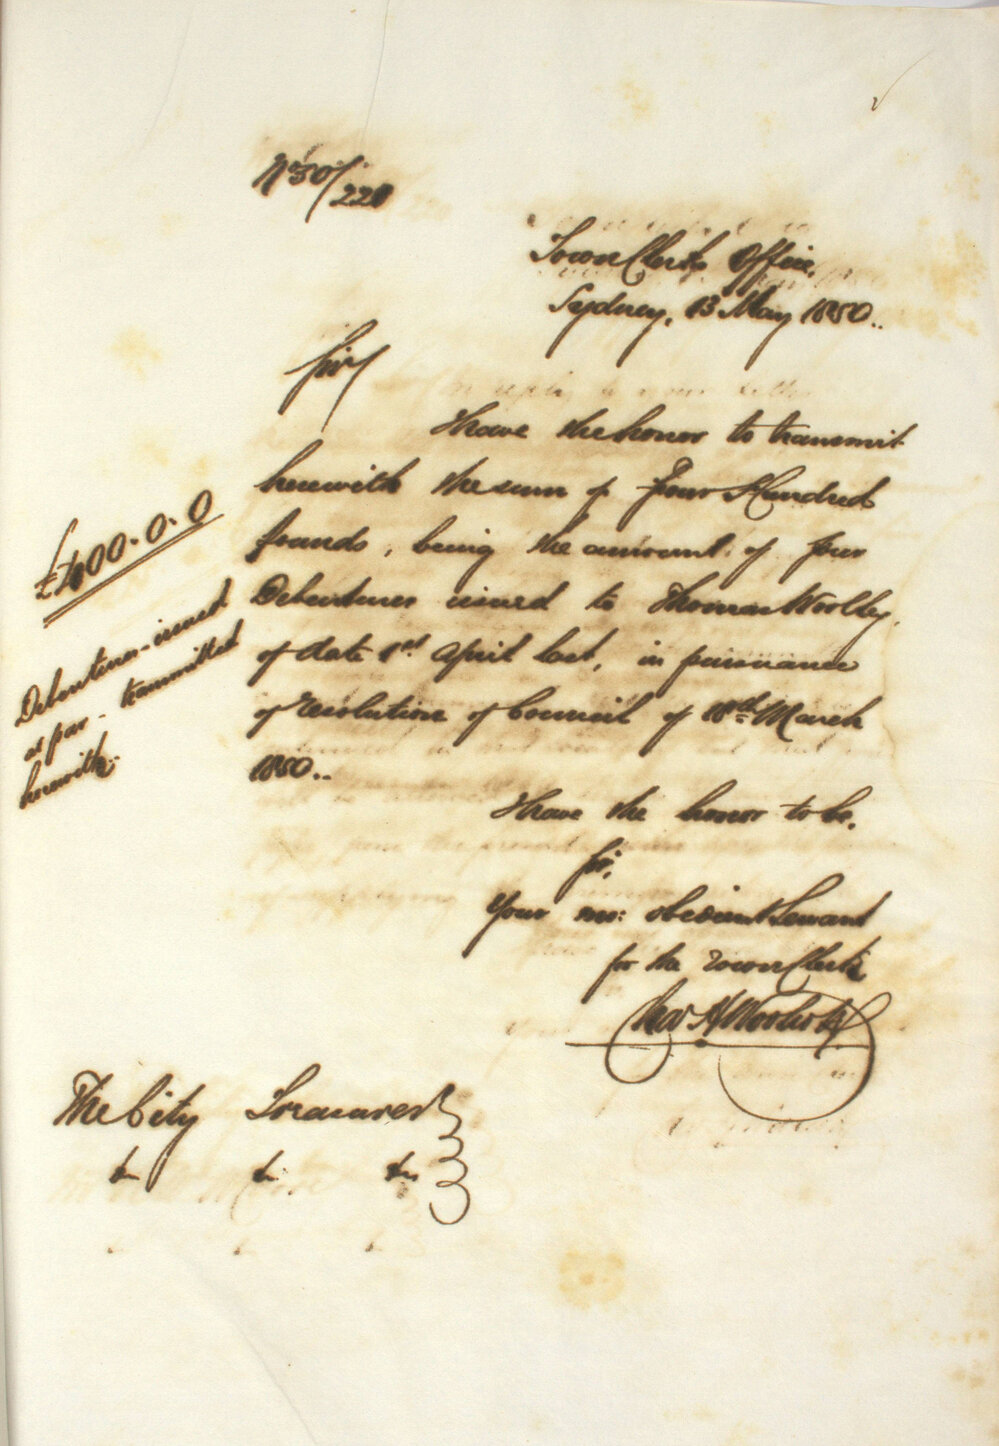 No 50/220
Town Clerks Office,
Sydney, 13 May 1850..
Sir/
I have the honor to transmit
herewith the sum of Four Hundred
Pounds, being the amount of four
Debentures issued to Thomas Woolley,
of date 1st April last, in pursuance
of resolution of Council of 18th March
1850..
£400.0.0
Debentures - issued
as par - transmitted
herewith.
I have the honor to be,
Sir,
Your mo: obedient Servant
for the Town Clerk
Chas H Woolcott
The City Treasurer
&c &c &c